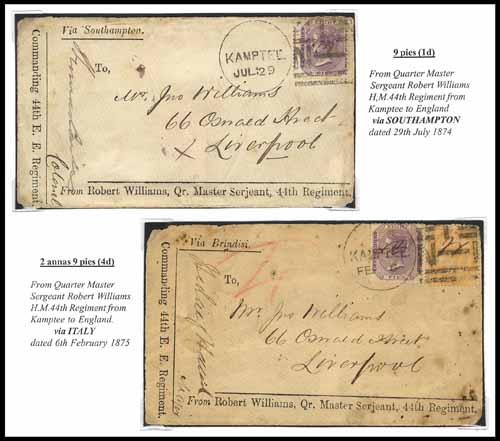 9 pies (1d)
From Quarter Master
Sergeant Robert Williams
H,M.44th Regiment from
Kamptee to England
via SOUTHAMPTON
dated 29th July 1874
Via Southampton.
KAMPTEE
JUL 29
To,
Mr. Jno Williams
66 Osnaed Street
Liverpool
Commanding 44th E. E. Regiment.
Colonel
From Robert Williams, Qr. Master Serjeant, 44th Regiment.
2 annas 9 pies (4d)
From Quarter Master
Sergeant Robert Williams
H.M.44th Regiment from
Kamptee to England.
via ITALY
dated 6th February 1875
Via Brindisi.
KAMPTEE
FE
To,
Mr. Jno Williams
66 Osnaed Street
Liverpool
Commanding 44th E. E. Regiment.
From Robert Williams, Qr. Master Serjeant, 44th Regiment.